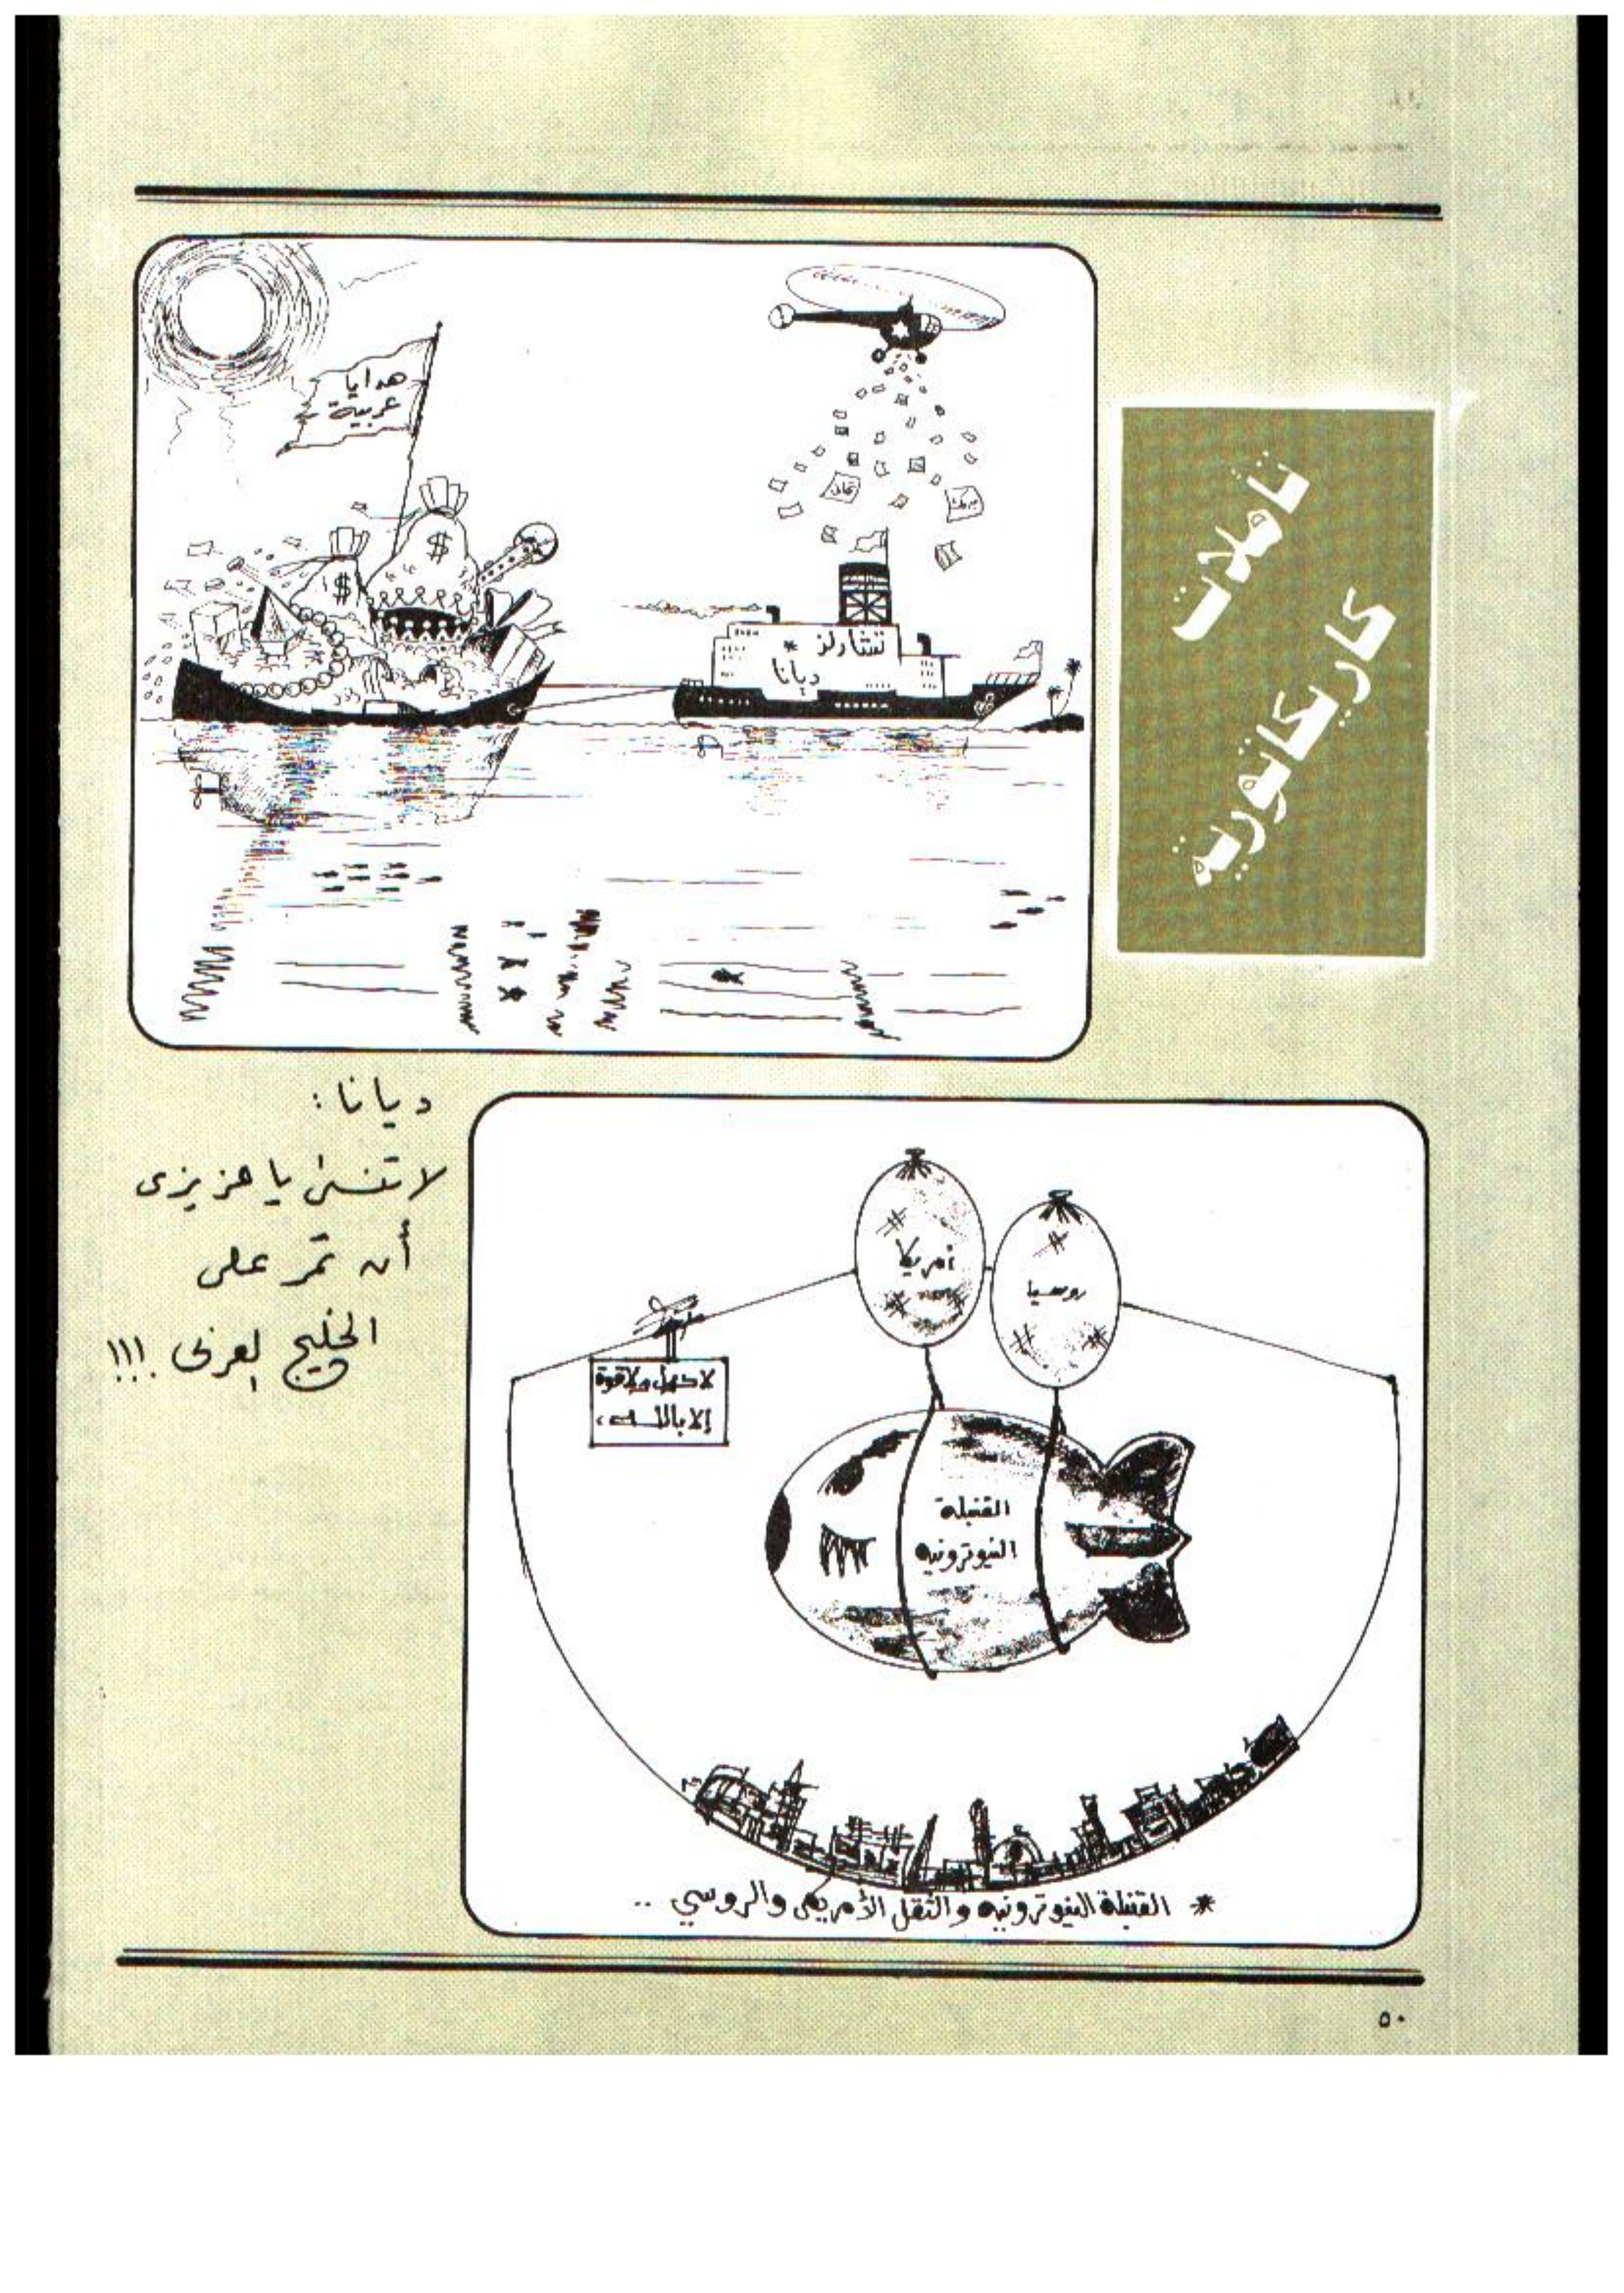 تأملات
كاريكاتورية
هدايا
عربية
تهاني
مبروك
تشارلز *
ديانا
ديانا :
لا تنسى يا عزيزى
أن تمر على
الخليج العربى !!!
أمريكا
روسيا
لا حول ولا قوة
إلا باللـــه،
القنبلة
النيوترونيه
* القنبلة النيوترونيه والثقل الأمريكى والروسي ..
٥٠